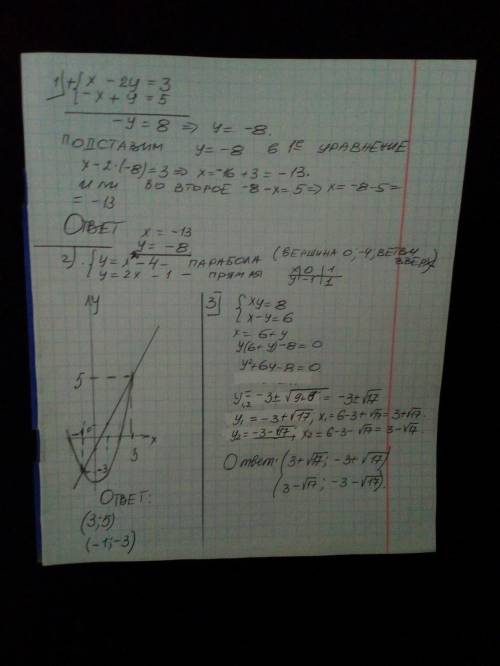 1) + { x - 2y = 3
-x + y = 5
-y = 8 => y = -8.
ПОДСТАВИМ y = -8 в 1ое УРАВНЕНИЕ
x - 2·(-8) = 3 => x = -16 + 3 = -13.
ИЛИ ВО ВТОРОЕ -8 - x = 5 => x = -8 - 5 =
= -13
ОТВЕТ x = -13
y = -8
2). { y = x² - 4 - ПАРАБОЛА (ВЕРШИНА 0; -4; ВЕТВИ ВВЕРХ)
y = 2x - 1 - ПРЯМАЯ
x 0 1
y -1 1
y
5
3 x
-3
ОТВЕТ:
(3; 5)
(-1; -3)
3) { xy = 8
x - y = 6
x = 6 + y
y(6 + y) - 8 = 0
y² + 6y - 8 = 0
y1,2 = -3 ± √9+8 = -3 ± √17
y1 = -3 + √17, x1 = 6 - 3 + √17 = 3 + √17.
y2 = -3 - √17, x2 = 6 - 3 - √17 = 3 - √17
Ответ: (3 + √17; -3 + √17)
(3 - √17; -3 - √17).